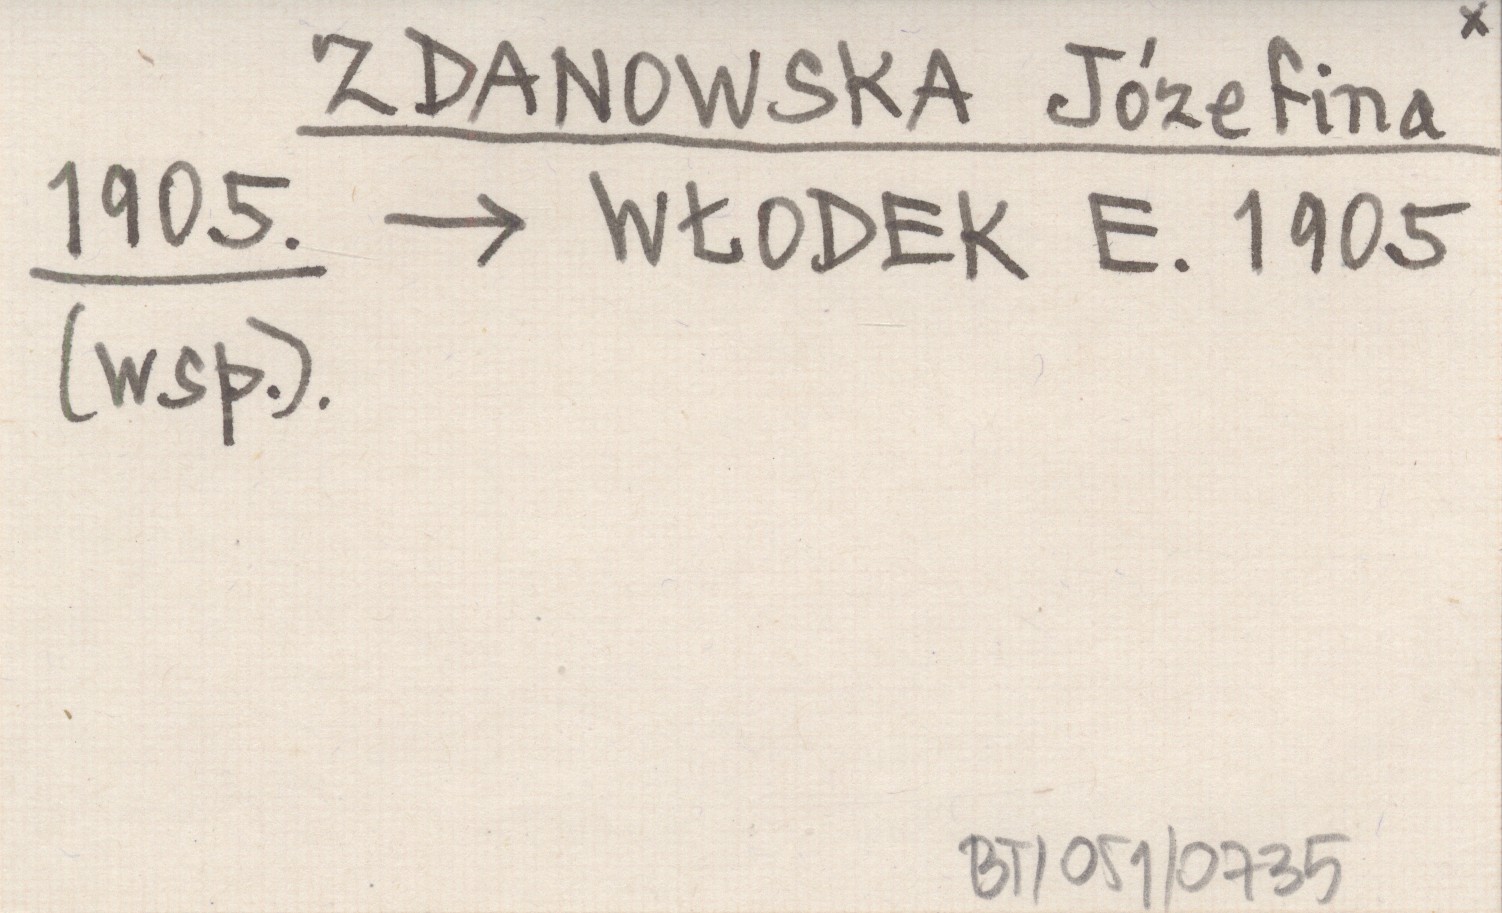 x
ZDANOWSKA Józefina
1905. → WŁODEK E. 1905
(wsp.).
BT/051/0735